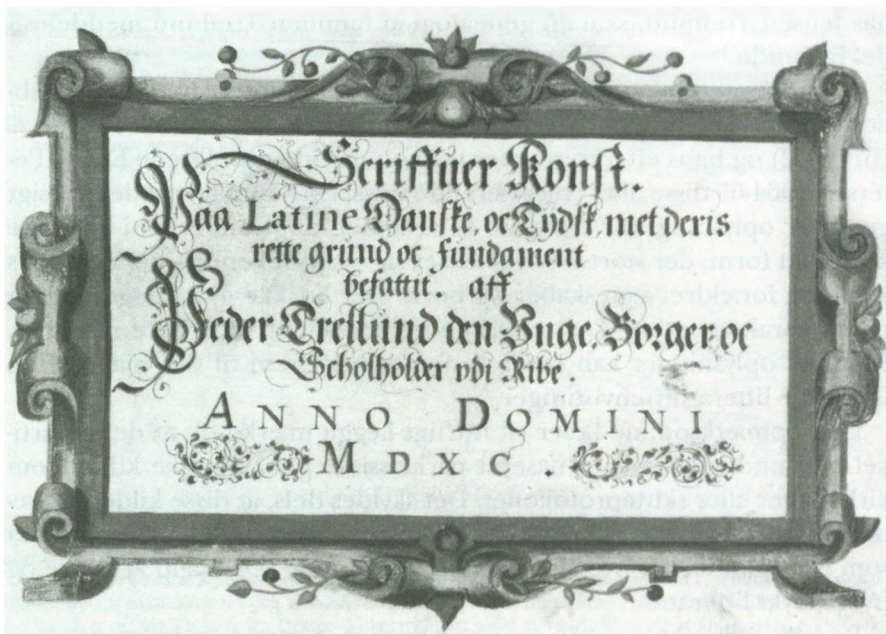 Scriffuer Konst.
Paa Latine Danske, oc Tydsk, met deris
rette grund oc fundament
befattit aff
Peder Trellund den Vnge, Borger, oc
Scholholder vdi Ribe.
ANNO DOMINI
MDXC